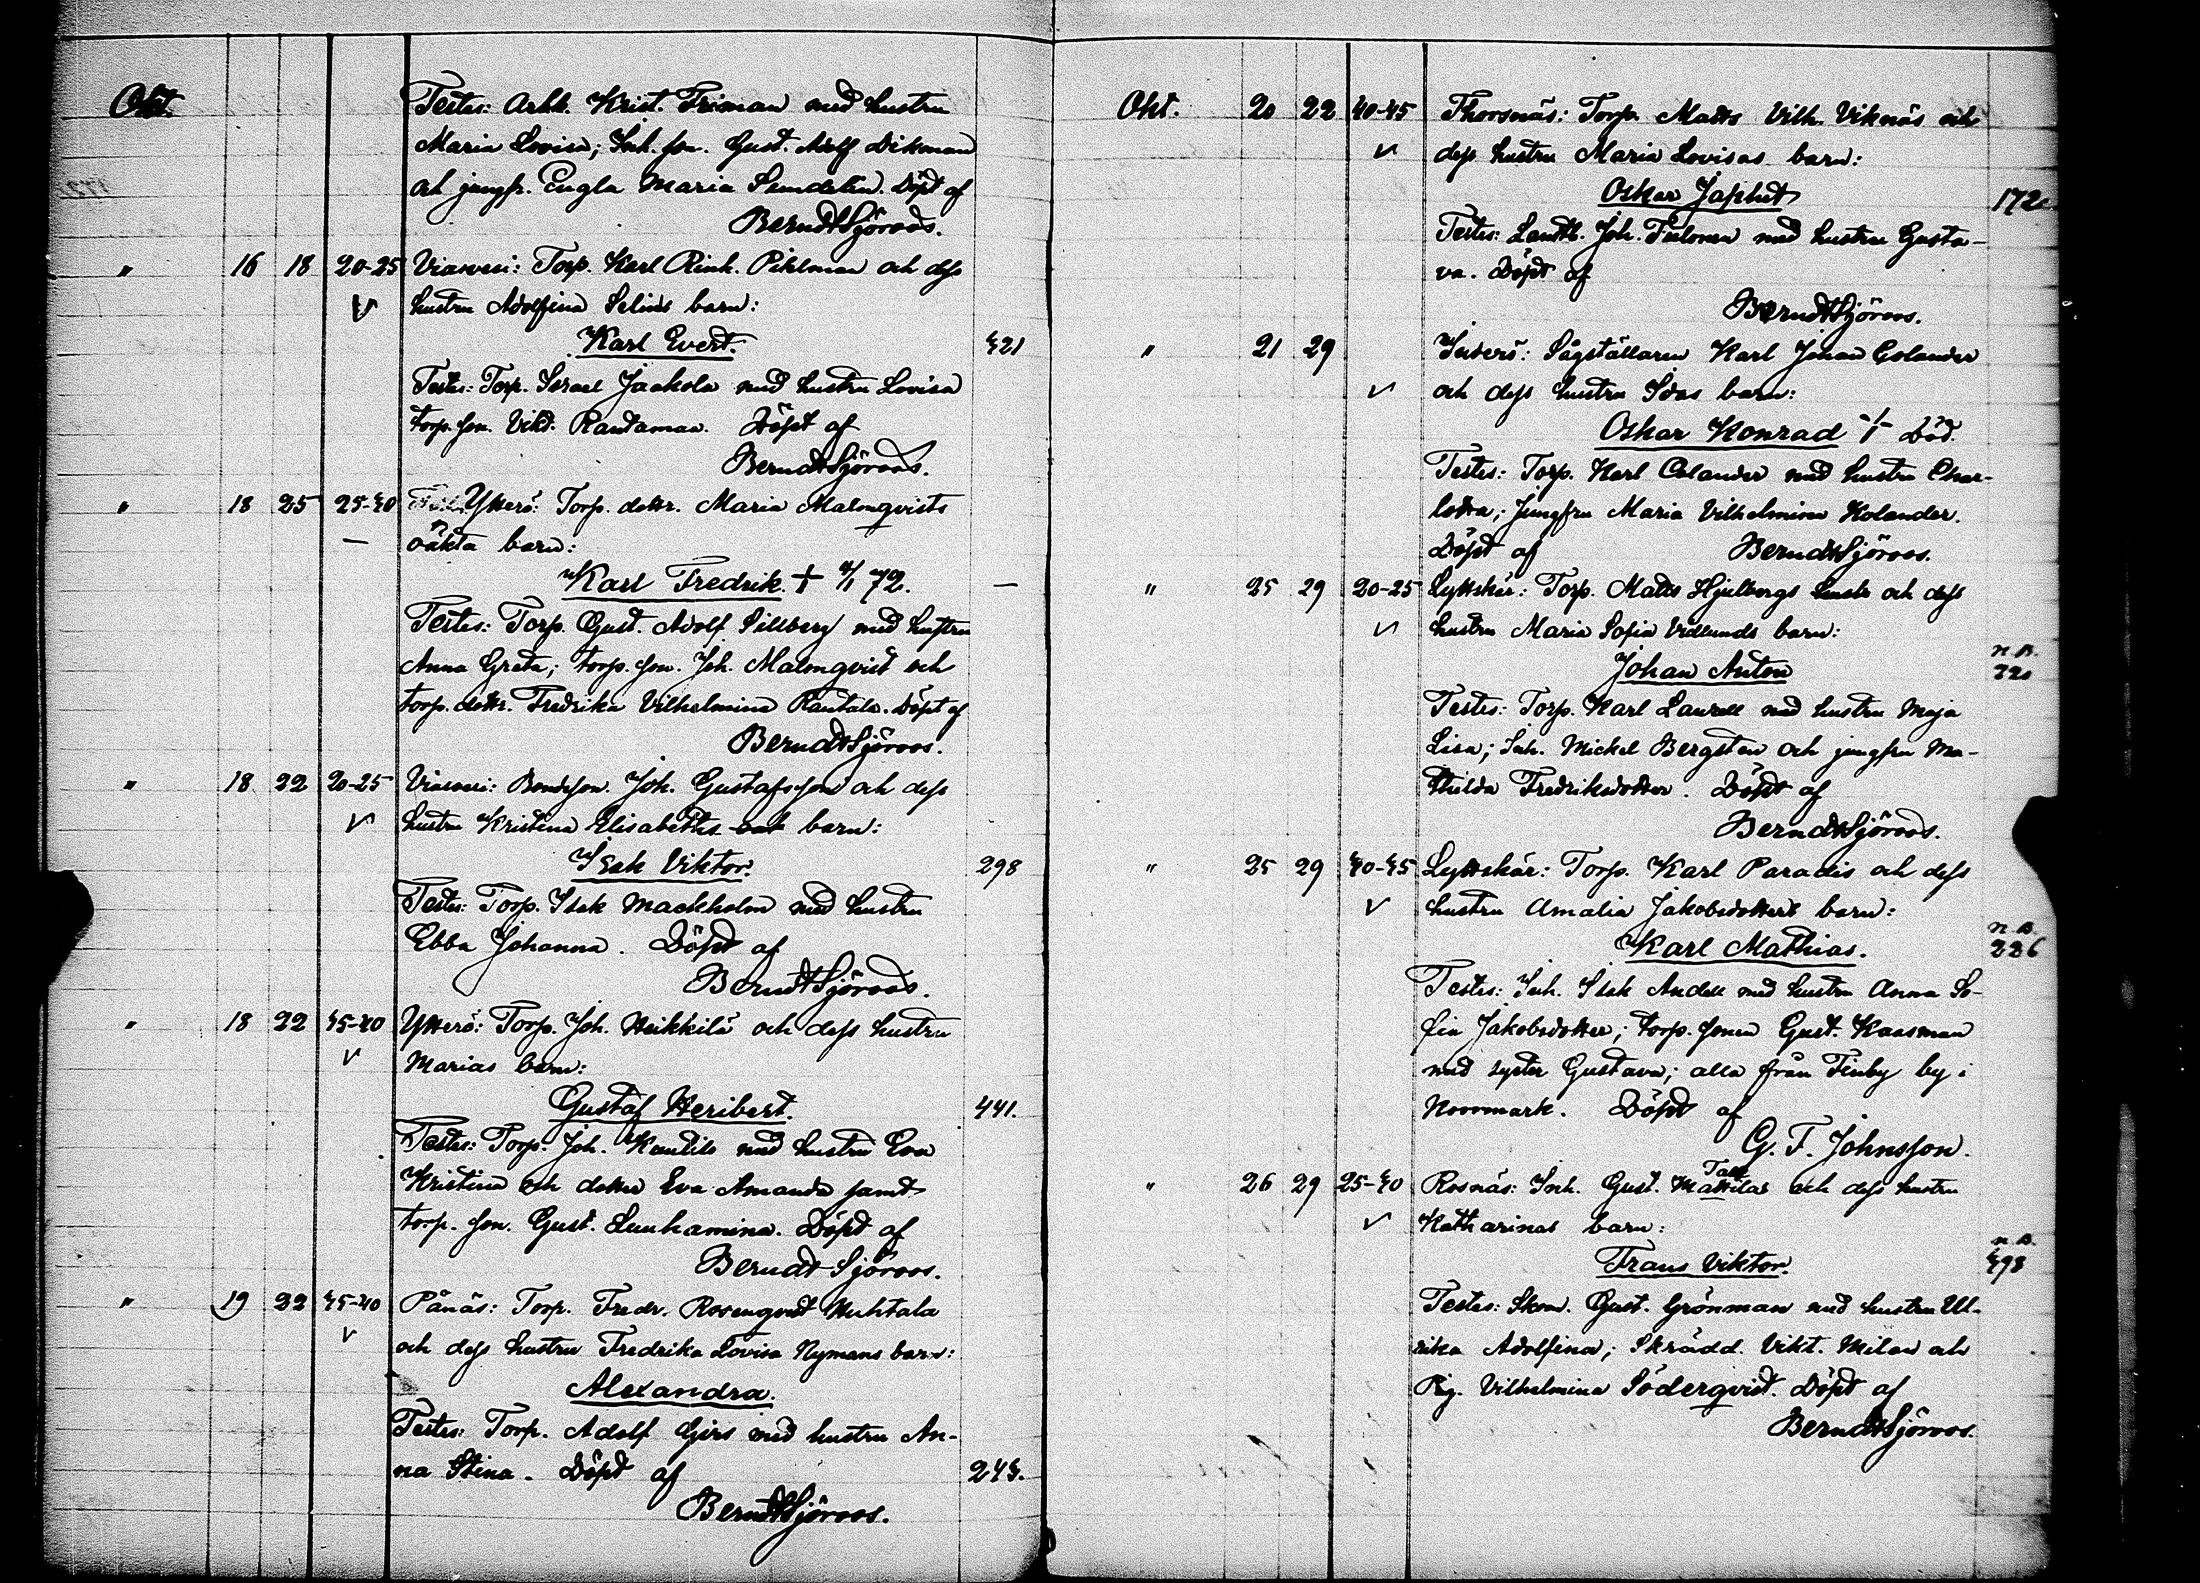 Okt. Testes: Arbk. Krist. Friman med hustru
Maria Lovisa; Inh. son. Gust. Adolf Dikman
och jungfr. Engla Maria Sundelin. Döpt af
Berndt Sjöroos.
" 16 18 20-25 Viasvesi: Torp. Karl Rink. Pihlman och dess
v hustru Adolfina Selins barn:
Karl Evert. 421
Testes: Torp. Israel Jaakola med hustru Lovisa
torp. son. Vikt. Rautamaa. Döpt af
Berndt Sjöroos.
" 18 25 25-40 Ytterö: Torp. dottr. Maria Malmqvists
— oäkta barn:
Karl Fredrik. + 4/1 72. —
Testes: Torp. Gust. Adolf Sillberg med hustru
Anna Greta; torp. son. Joh. Malmqvist och
torp. dottr. Fredrika Vilhelmina Rautala. Döpt af
Berndt Sjöroos.
" 18 22 20-25 Viasvesi: Bondeson. Joh. Gustafsson och dess
v hustru Kristina Elisabeths barn:
Isak Viktor. 298
Testes: Torp. Isak Mackholm med hustru
Ebba Johanna. Döpt af
Berndt Sjöroos.
" 18 22 35-40 Ytterö: Torp. Joh. Heikkilä och dess hustru
v Marias barn:
Gustaf Heribert. 441.
Testes: Torp. Joh. Knutila med hustru Eva
Kristina och dotter Eva Amanda samt
torp. son. Gust. Luuhamina. Döpt af
Berndt Sjöroos.
" 19 22 35-40 Pånäs: Torp. Fredr. Rosenqvist Huhtala
v och dess hustru Fredrika Lovisa Nymans barn:
Alexandra.
Testes: Torp. Adolf Girs med hustru An-
na Stina. Döpt af 243.
Berndt Sjöroos.
Okt. 20 22 40-45 Thorsnäs: Torp. Matts Vilh. Viknäs och
v dess hustru Maria Lovisas barn:
Oskar Japhet 172
Testes: Landtb. Joh. Tulonen med hustru Gusta-
va. Döpt af
Berndt Sjöroos.
" 21 29 Inderö: Sågställaren Karl Johan Colander
v och dess hustru Idas barn:
Oskar Konrad + Död.
Testes: Torp. Karl Colander med hustru Char-
lotta; Jungfru Maria Vilhelmina Kolander.
Döpt af Berndt Sjöroos.
" 25 29 20-25 Lyttskär: Torp. Matts Hjulbergs och dess
v hustru Maria Sofia Vidlunds barn:
n. B.
Johan Anton 220
Testes: Torp. Karl Laurell med hustru Maja
Lisa; Inh. Mickel Bergsten och jungfru Ma-
thilda Fredriksdotter. Döpt af
Berndt Sjöroos.
" 25 29 40-45 Lyttskär: Torp. Karl Paradis och dess
v hustru Amalia Jakobsdotters barn:
n. B.
Karl Mathias. 226
Testes: Inh. Isak Andell med hustru Anna So-
fia Jakobsdotter; torp. sonen Gust. Kaasman
med syster Gustava; alla från Finby by i
Norrmark. Döpt af
G. F. Johnsson.
Tall
" 26 29 25-40 Rosnäs: Inh. Gust. Mattilas och dess hustru
v Katharinas barn:
n. B.
Frans Viktor. 498
Testes: Skom. Gust. Grönman med hustru Ul-
rika Adolfina; Skrädd. Vikt. Milan och
Pig. Vilhelmina Söderqvist. Döpt af
Berndt Sjöroos.